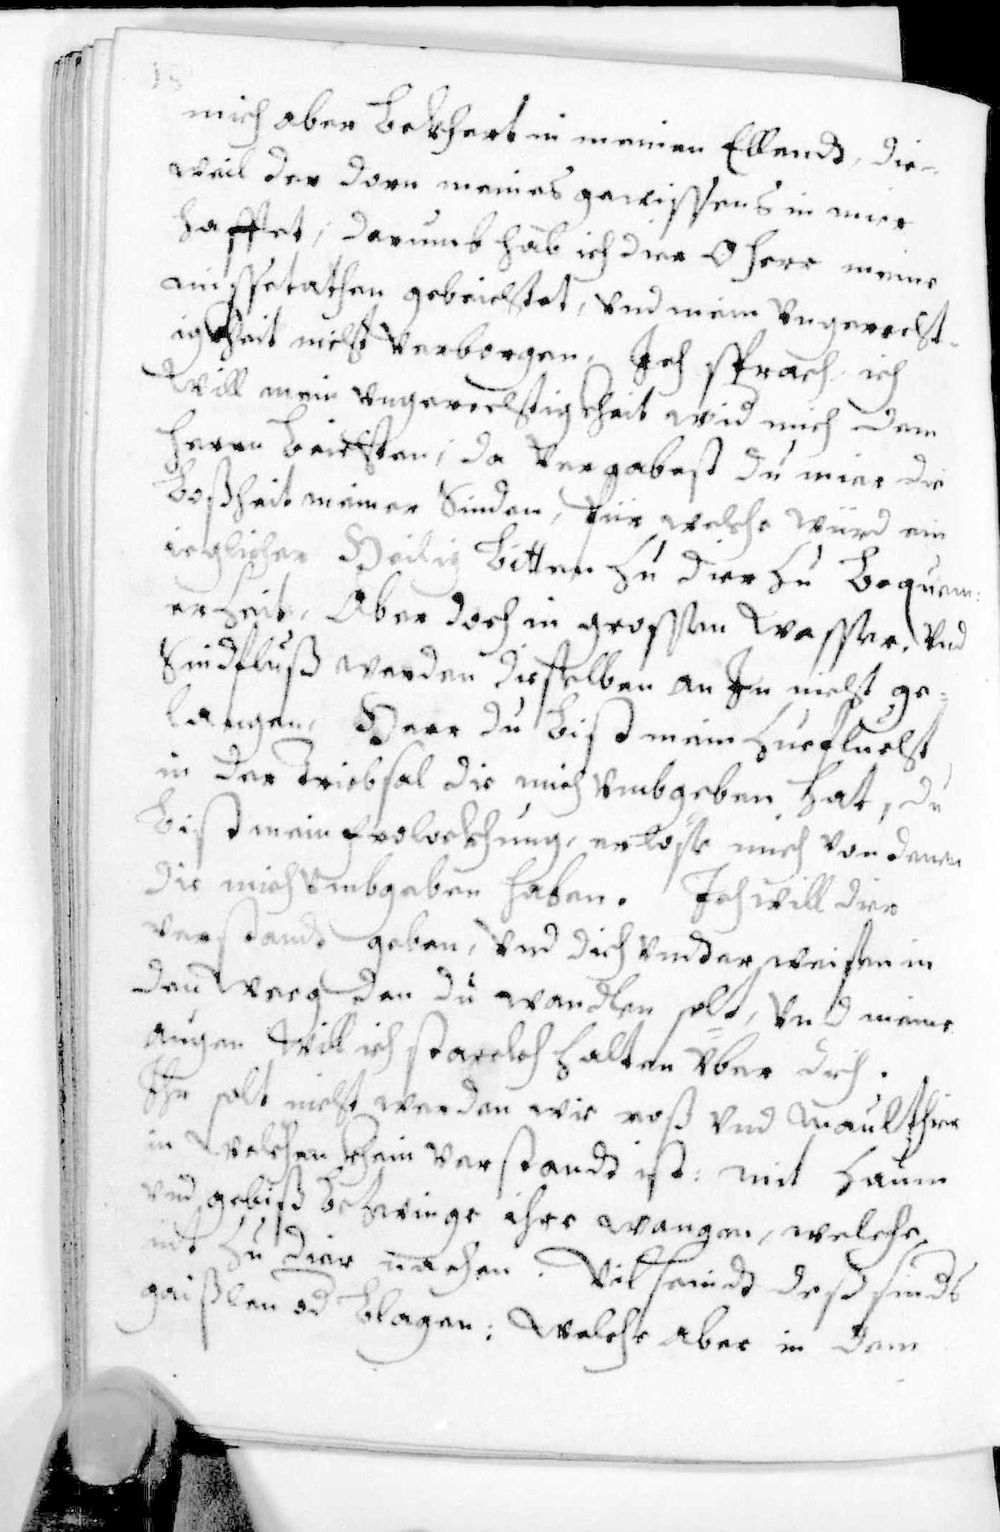 mich aber bekhert in meinen Ellendt, die-
weil der dorn meines gewissens in mier
hafftet, darumb hab ich dier O herr meine
missetathen gebeichtet, vnd mein vngerecht-
igkheit nicht verborgen, Ich sprach, ich
will mein vngerechtigkheit wid mich dem
herrn beichten, da vergabest du mier die
boßheit meiner Sinden, für welche würd ein
ieglicher Heilig bitten zu dier zu bequem:
erheit, Aber doch in grossen wasser, vnd
Sindfluß werden dieselben an Jn nicht ge-
langen, Herr du bist mein zuefluecht,
in der triebsal die mich vmbgeben hat, du
bist mein frolockhung, erlöse mich von denen
die mich vmbgeben haben. Ich will dier
verstandt geben, vnd dich vnderweisen in
den weeg den du wandlen solt, vnd meine
augen will ich starckh halten über dich.
Ihr solt nicht werden wie roß vnd maulthier
in welchen khein verstandt ist: mit zaum
vnd gebiß bezwinge ihre wangen, welche
nit zu dier nachen. Vil seindt deß sinds
gaißlen od blagen: welche aber in dem